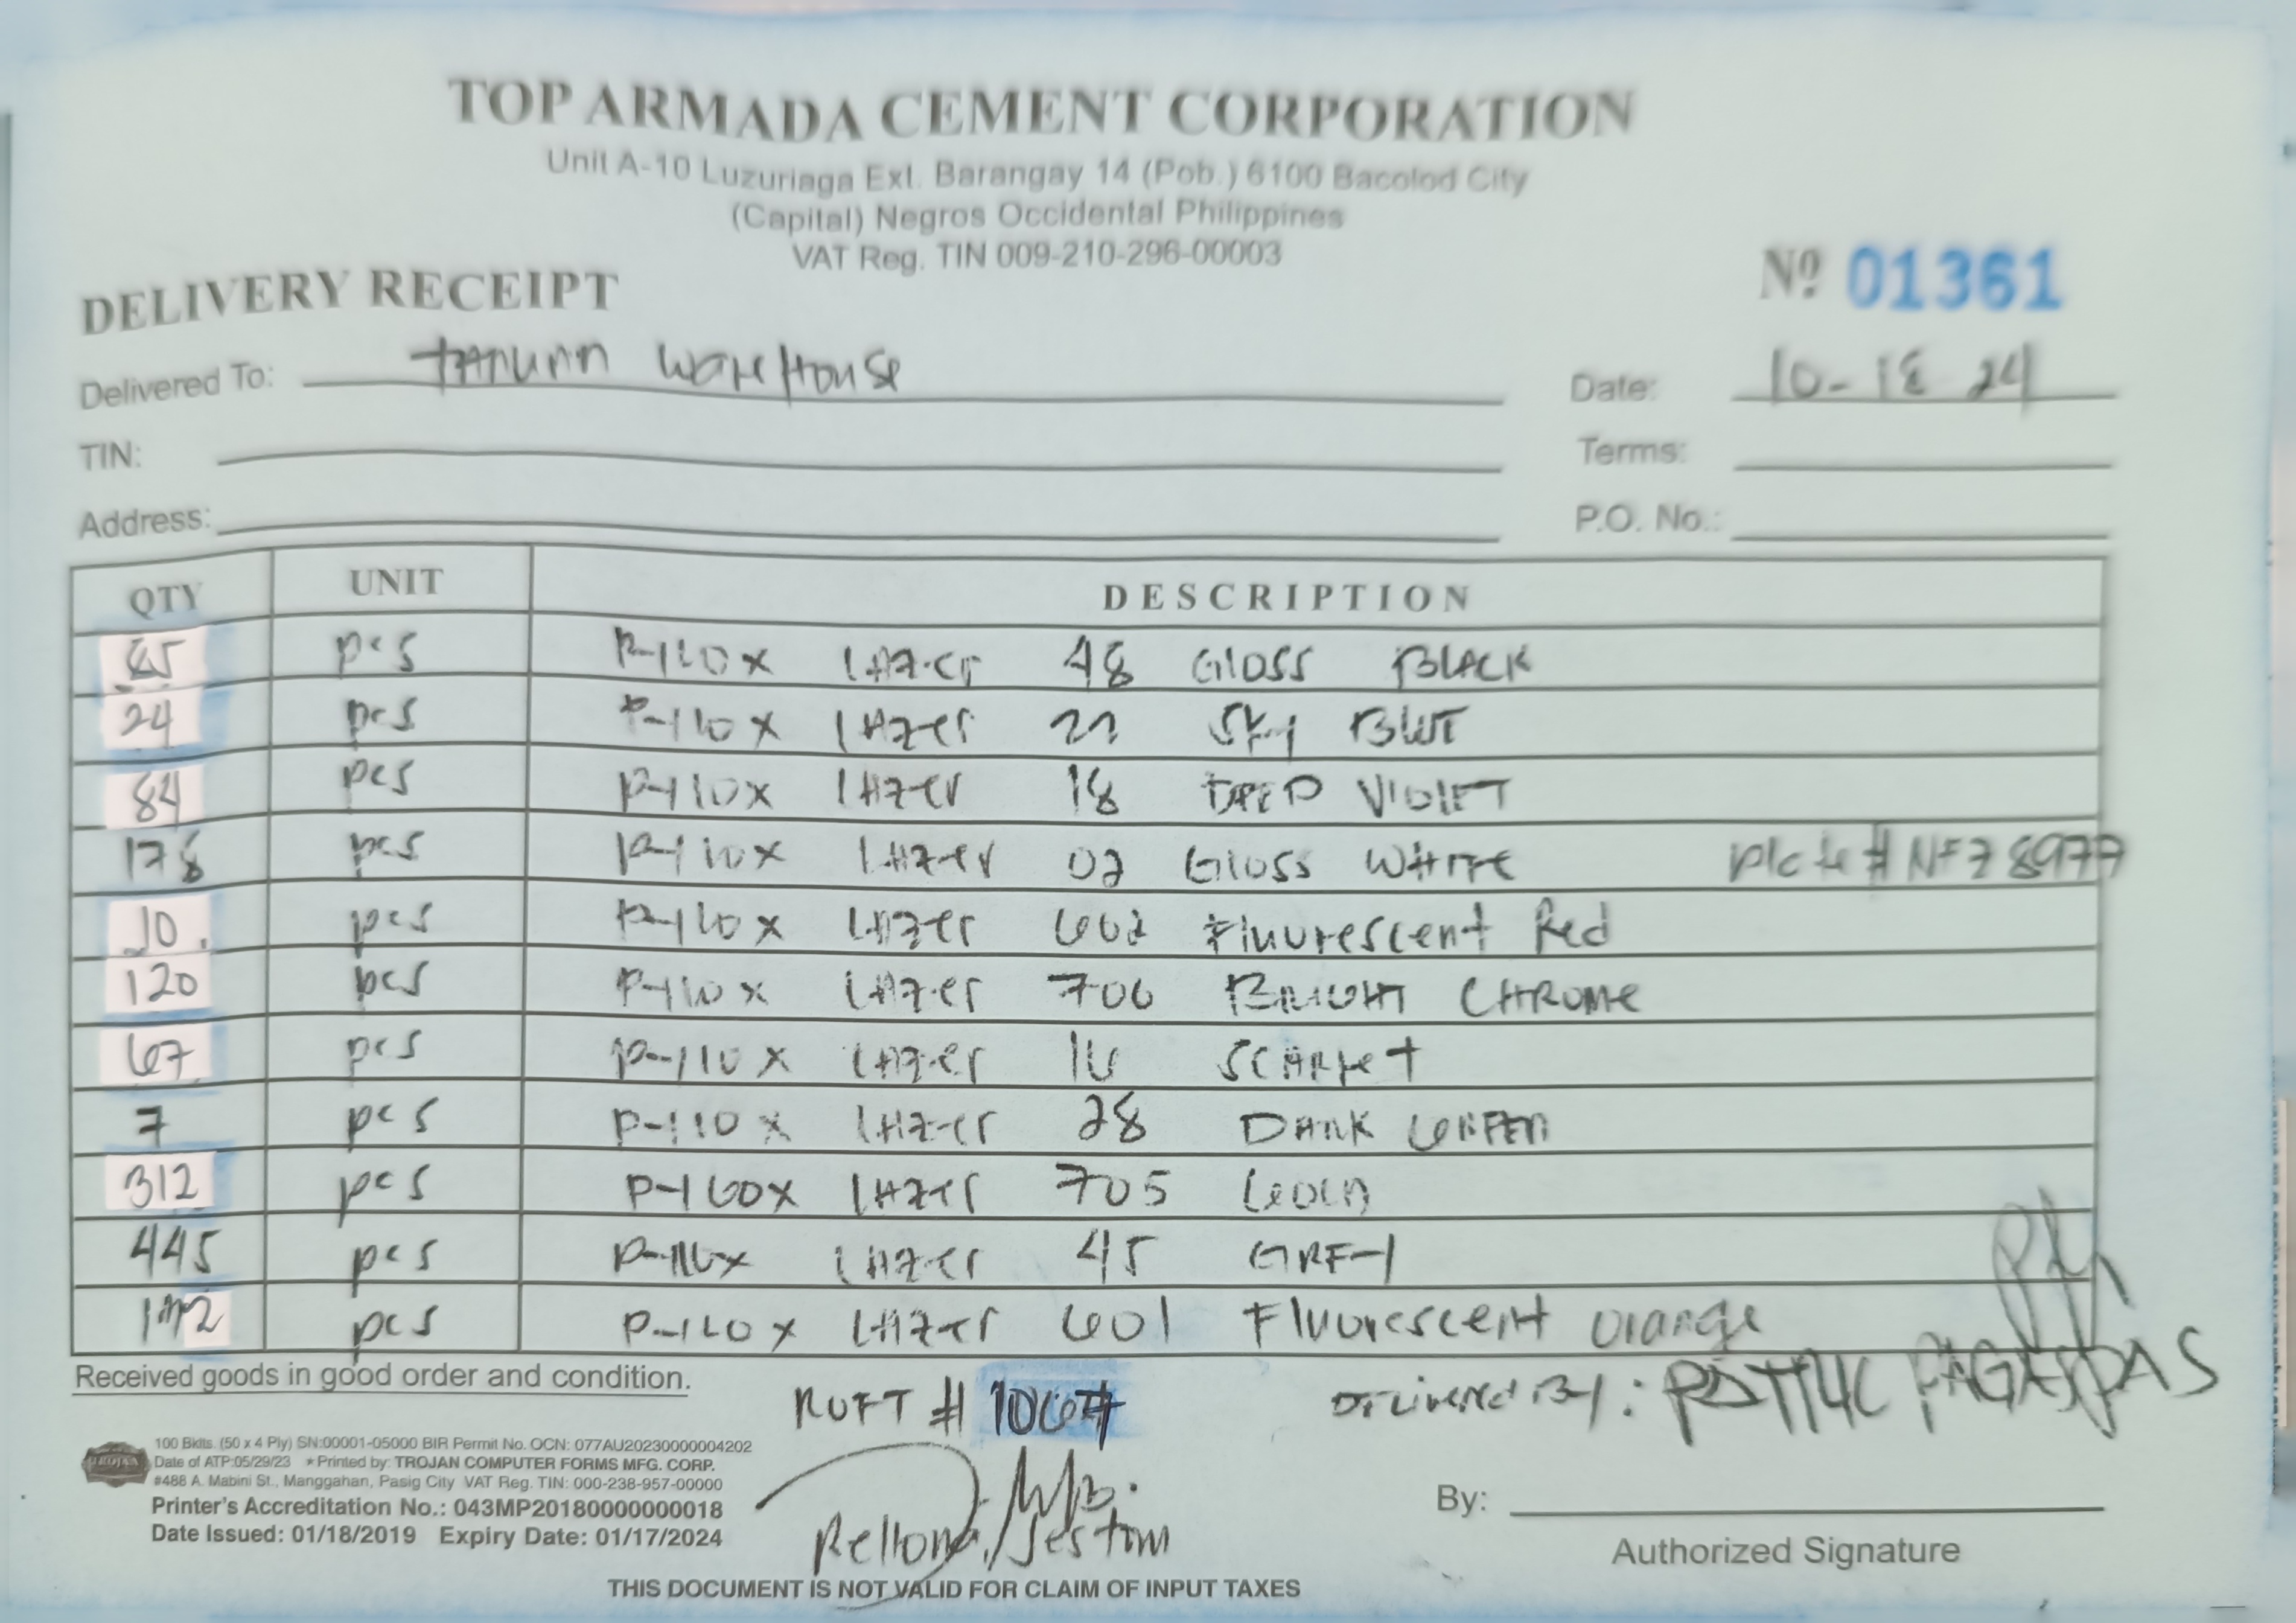 TOP ARMADA CEMENT CORPORATION
Unit A-10 Luzuriaga Ext. Barangay 14 (Pob.) 6100 Bacolod City
(Capital) Negros Occidental Philippines
VAT Reg. TIN 009-210-296-00003
DELIVERY RECEIPT
Nº 01361
Delivered To: WareHouse
Date: 10-18 24
TIN:
Terms:
Address:
P.O. No.:
QTY UNIT DESCRIPTION
pcs LAZer 48 Gloss BLACK
24 pcs LAZer SKY BLUE
84 pcs P-110x LAZer 18 DEEP VIOLET
178 pcs P-110x LAZer 02 Gloss WHITE Plate # NF78977
10 pcs LAZer 602 Fluurescent Red
120 pcs P-110x LAZer 706 BRIGHT CHROME
67 pcs P-110x LAZer SCARLET
7 pcs P-110x LAZer 28 DARK GREEN
312 pcs LAZer 705 GOLD
445 pcs LAZer 45 GRE-1
pcs LAZer 601 Fluurescent Orange
Received goods in good order and condition.
#
Delivered By: PAGASPAS
100 Bklts. (50 x 4 Ply) SN:00001-05000 BIR Permit No. OCN: 077AU20230000004202
TROJAN
Date of ATP:05/29/23 ★Printed by: TROJAN COMPUTER FORMS MFG. CORP.
#488 A. Mabini St., Manggahan, Pasig City VAT Reg. TIN: 000-238-957-00000
Printer's Accreditation No.: 043MP20180000000018
Date Issued: 01/18/2019 Expiry Date: 01/17/2024
By:
Authorized Signature
THIS DOCUMENT IS NOT VALID FOR CLAIM OF INPUT TAXES